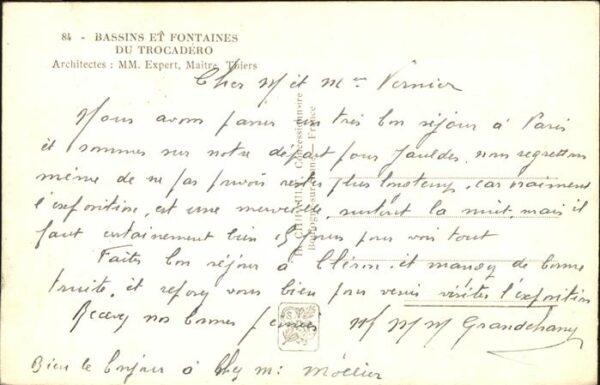 84 - BASSINS ET FONTAINES
DU TROCADÉRO
Architectes : MM. Expert, Maitre, Thiers
Cher M et Mme Vernier
Nous avons passer un très bon séjour à Paris
et sommes sur notre départ pour Jauldes, nous regrettons
même de ne pas pouvoir rester plus longtemps, car vraiment
l'exposition, est une merveille, surtout la nuit, mais il
faut certainement bien 15 jours pour voir tout
Faites bon séjour à Cléron, et mangez de bonne
truite, et reposez vous bien pour venir visiter l'exposition
Recevez nos bonnes pensées M M M Grandchamp
Bien le bonjour à M:
H. CHIPAULT, Concessionnaire
Boulogne-sur-Seine - France